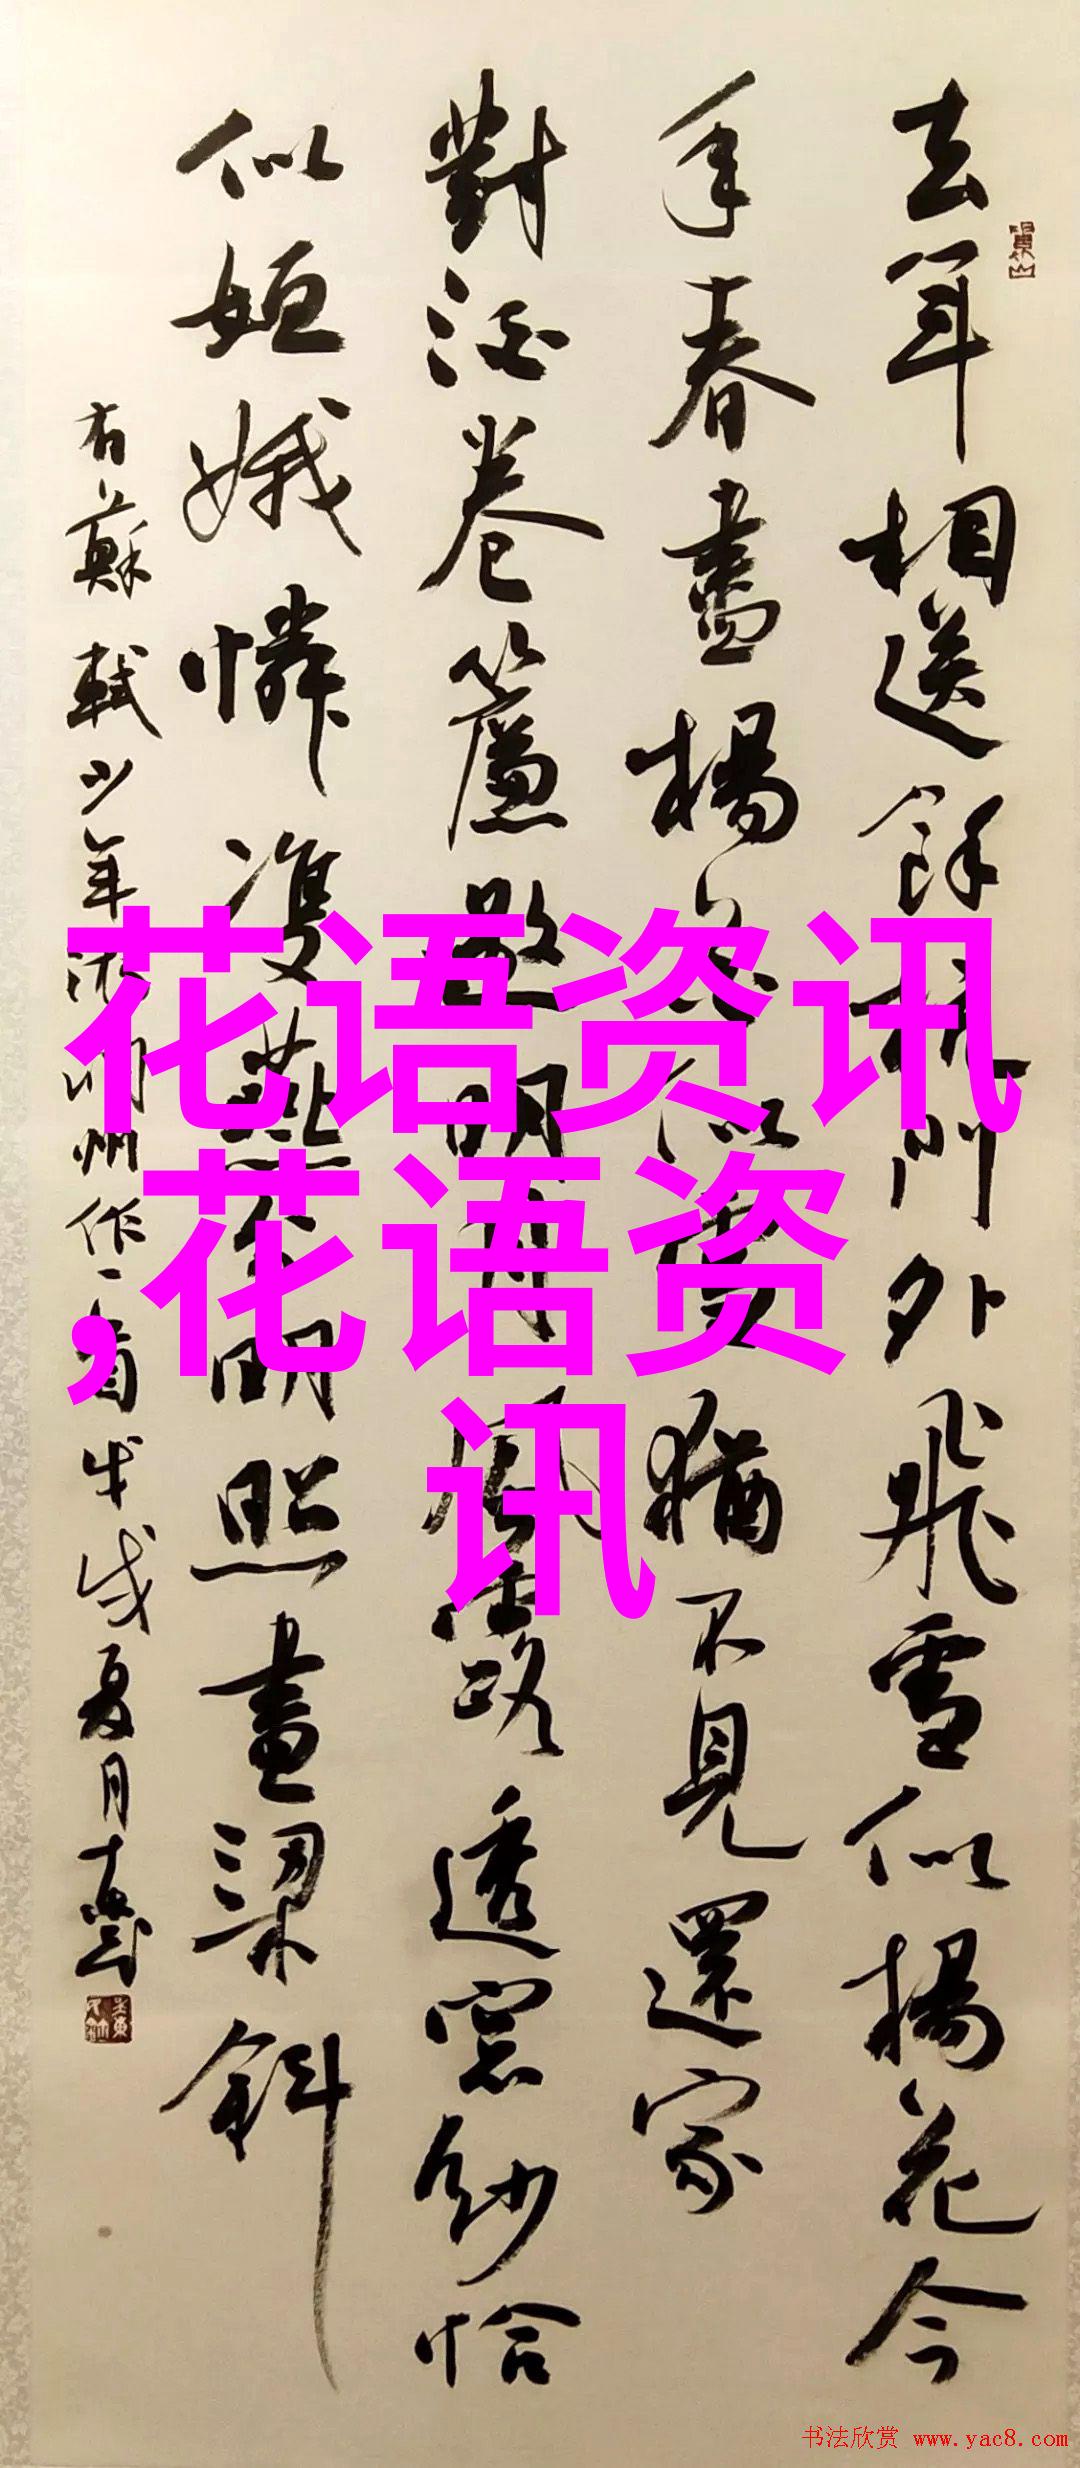 去年相送餘杭門外飛雪似楊花今
年春盡楊花似雪猶不見還家
對酒卷簾邀明月風露透窓紗恰
似姮娥憐雙燕分明照畫梁斜
右蘇軾少年游潤州作一首戊戌夏月
花语资讯
,花语资
讯
书法欣赏 www.yac8.com